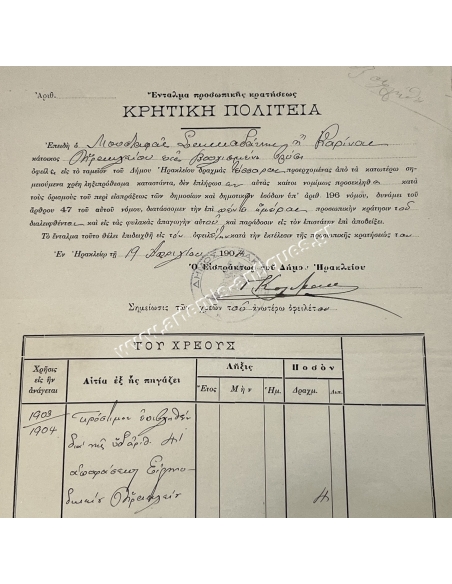 Ἀριθ.
Ἔνταλμα προσωπικῆς κρατήσεως
ΚΡΗΤΙΚΗ ΠΟΛΙΤΕΙΑ
Ἐπειδὴ ὁ Μουσταφᾶς
κάτοικος Ἡρακλείου
ὀφείλει εἰς τὸ ταμεῖον τοῦ Δήμου Ἡρακλείου δραχμὰς τέσσαρας προερχομένας ἀπὸ τὰ κατωτέρω ση-
μειούμενα χρέη ληξιπρόθεσμα καταστάντα, δὲν ἐπλήρωσεν αὐτὰς καίτοι νομίμως προσεκλήθη κατὰ
τοὺς ὁρισμοὺς τοῦ περὶ εἰσπράξεως τῶν δημοσίων καὶ δημοτικῶν ἐσόδων ὑπ' ἀριθ. 196 νόμου, δυνάμει τοῦ
ἄρθρου 47 τοῦ αὐτοῦ νόμου, διατάσσομεν τὴν ἐπὶ ἡμέρας προσωπικὴν κράτησιν τοῦ
διαληφθέντος καὶ εἰς τὰς φυλακὰς ἀπαγωγὴν αὐτοῦ καὶ παράδοσιν εἰς τὸν ἐπιστάτην ἐπὶ ἀποδείξει.
Τὸ ἔνταλμα τοῦτο θέλει ἐπιδειχθῆ εἰς τὸν ὀφειλέτην κατὰ τὴν ἐκτέλεσιν τῆς προσωπικῆς κρατήσεώς του
Ἐν Ἡρακλείῳ τῇ 19 Ἀπριλίου 1904
Ὁ Εἰσπράκτωρ τοῦ Δήμου Ἡρακλείου
Σημείωσις τῶν χρεῶν τοῦ ἀνωτέρω ὀφειλέτου
ΤΟΥ ΧΡΕΟΥΣ
Χρῆσις εἰς ἣν ἀνάγεται
Αἰτία ἐξ ἧς πηγάζει
Λῆξις
Ποσὸν
Ἔτος Μὴν Ἡμ. Δραχμ. Λεπ.
1903
1904
πρόστιμον ἐπιβληθὲν
διὰ τῆς ὑπ' ἀριθ. 41
ἀποφάσεως Εἰρηνο-
δικείου Ἡρακλείου
4